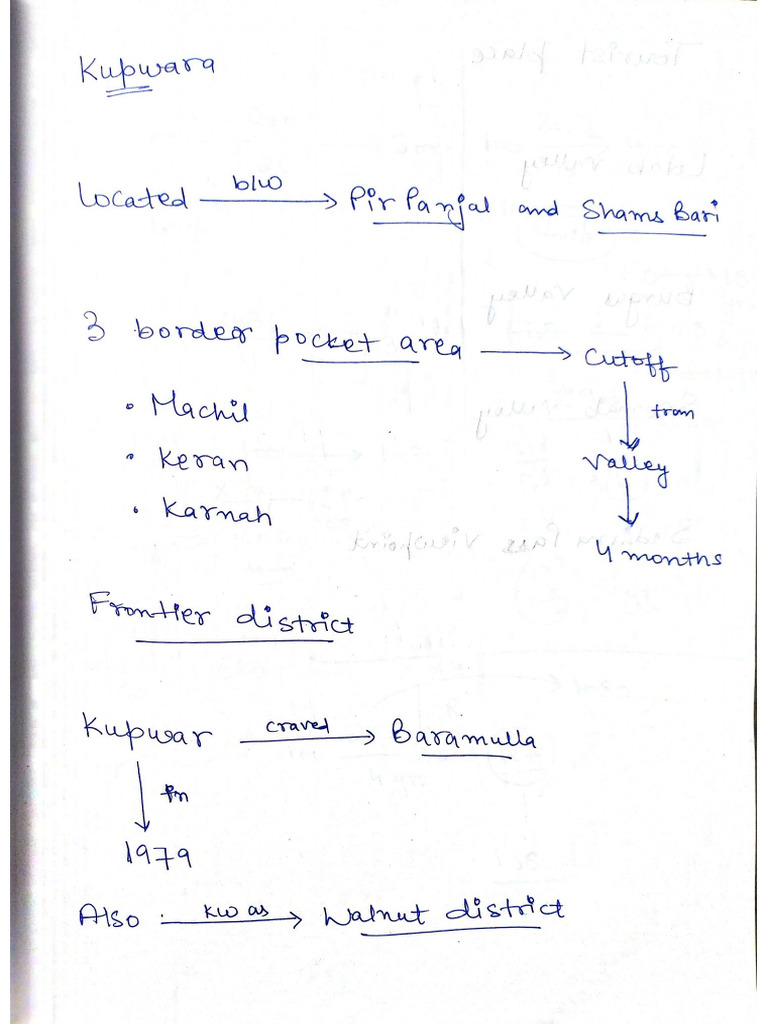 Kupwara
Located b/w → Pir Panjal and Shams Bari
3 border pocket area → Cutoff
↓ from
• Machil
• Keran
Valley
↓
• Karnah
4 months
Frontier district
Kupwar craved → Baramulla
↓ in
1979
Also kw as → Walnut district